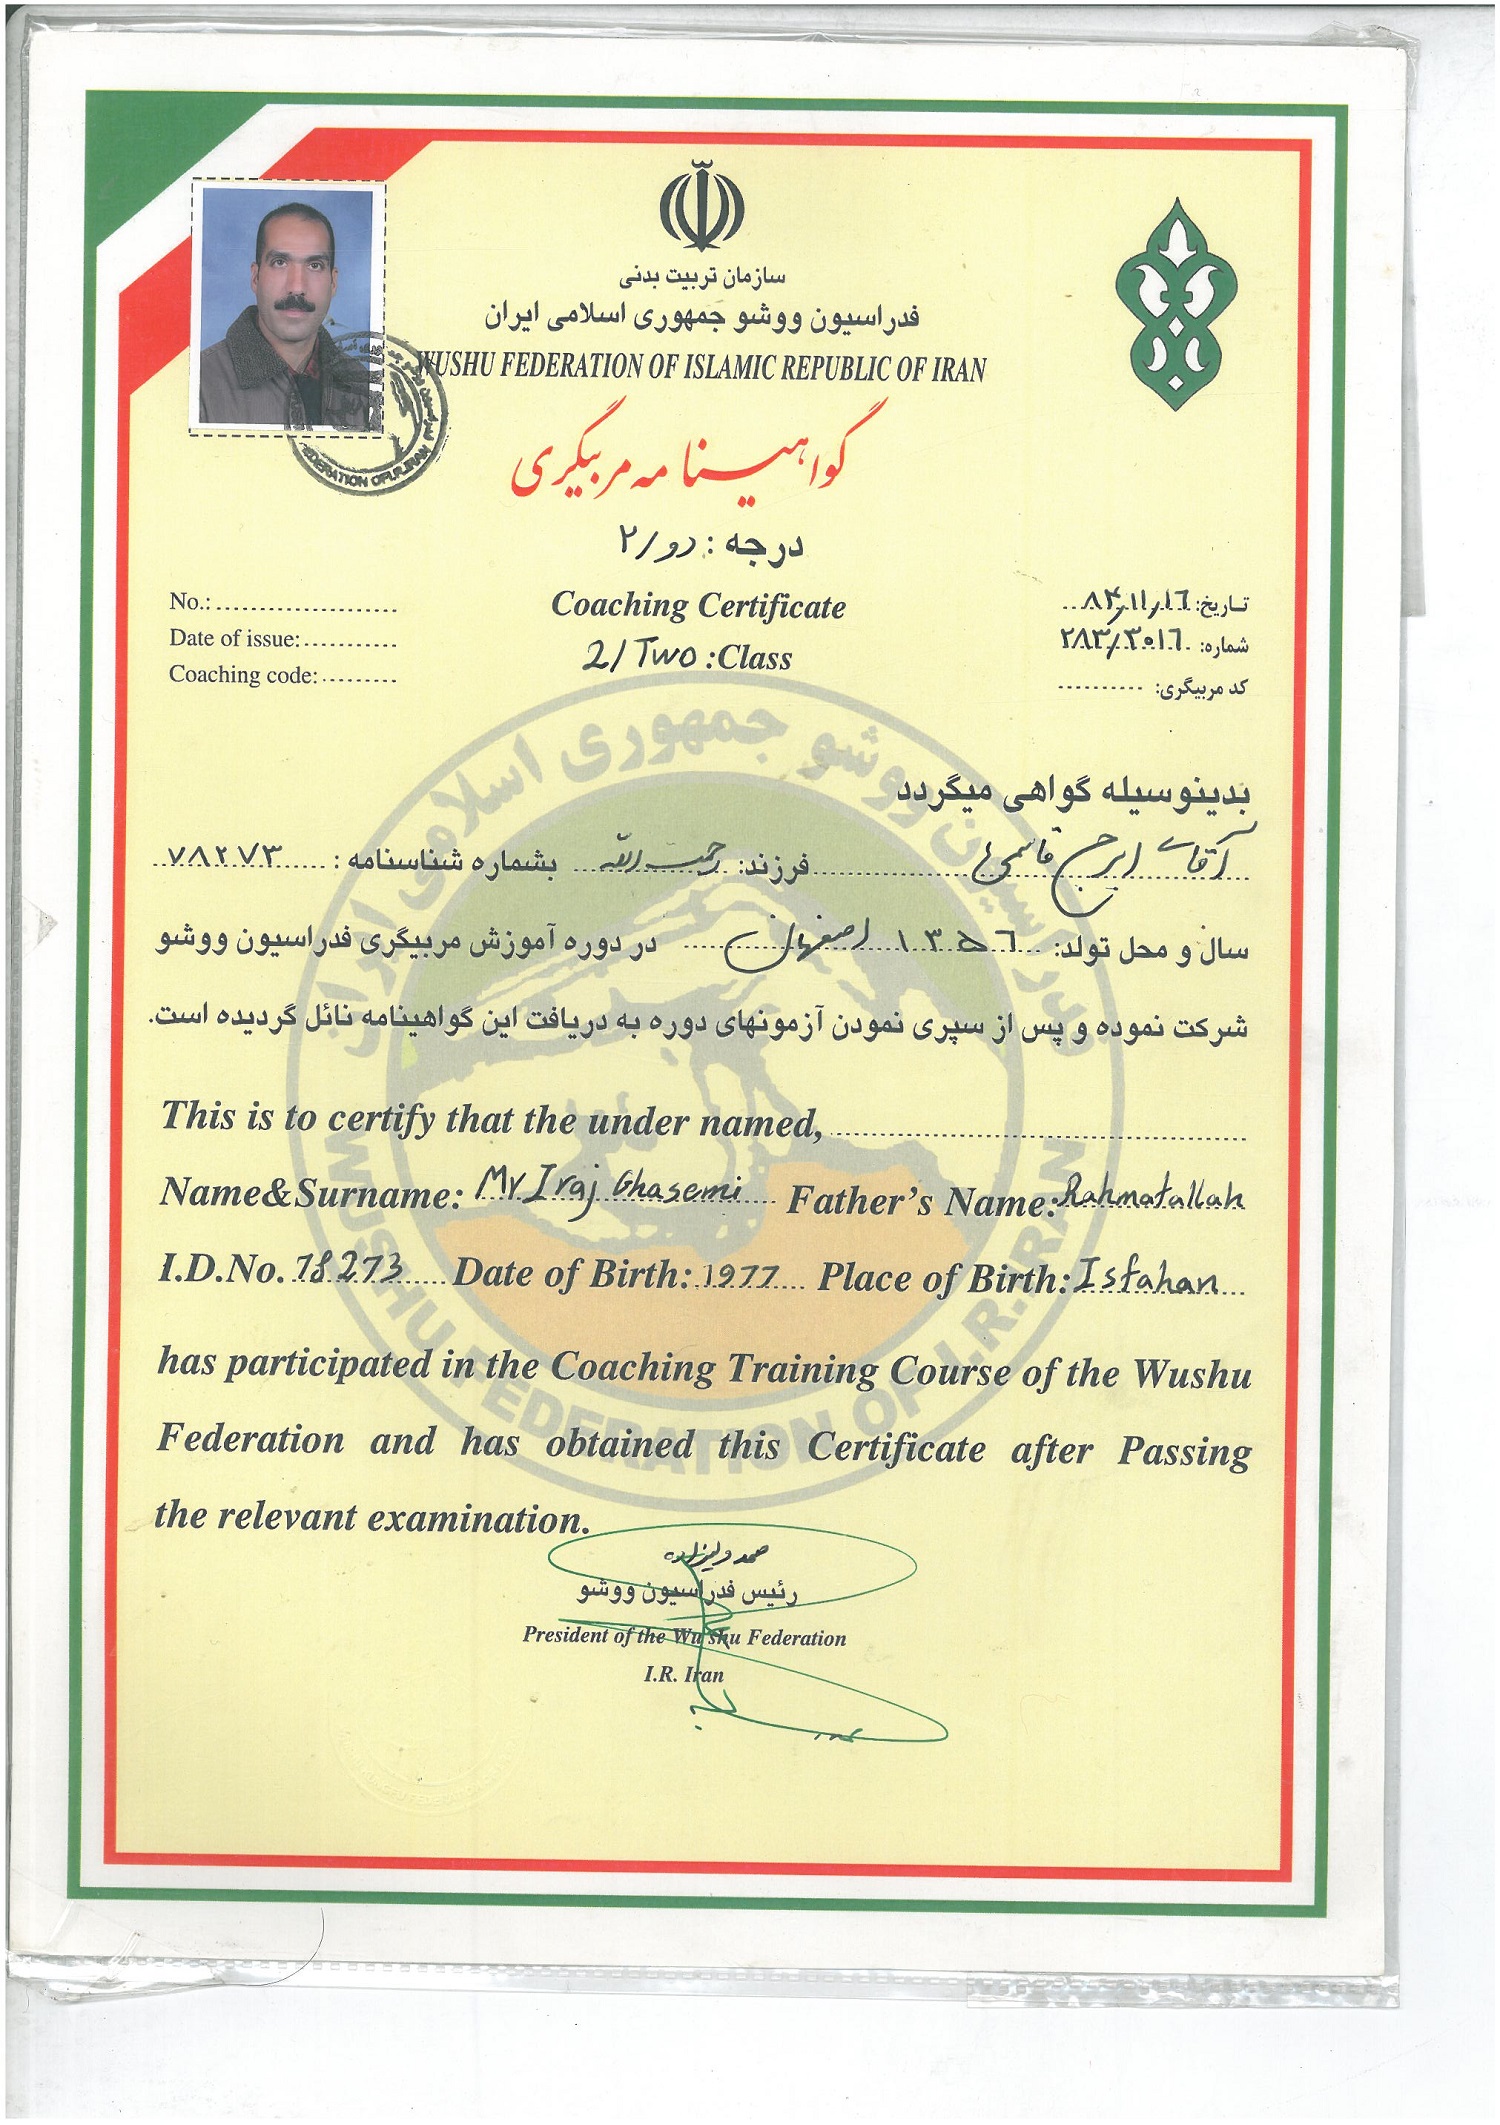 سازمان تربیت بدنی
فدراسیون ووشو جمهوری اسلامی ایران
WUSHU FEDERATION OF ISLAMIC REPUBLIC OF IRAN
گواهینامه مربیگری
درجه : دو/۲
Coaching Certificate
2/Two :Class
No.:
Date of issue:
Coaching code:
تاریخ: ۸۴,۱۱,۱۶
شماره: ۲۸۳/۳۰۱۶
کد مربیگری:
بدینوسیله گواهی میگردد
آقای ایرج قاسمی فرزند: رحمت الله بشماره شناسنامه : ۷۸۲۷۳
سال و محل تولد: ۱۳۵۶ اصفهان در دوره آموزش مربیگری فدراسیون ووشو
شرکت نموده و پس از سپری نمودن آزمونهای دوره به دریافت این گواهینامه نائل گردیده است.
This is to certify that the under named,
Name&Surname: Mr Iraj Ghasemi Father's Name: Rahmatallah
I.D.No. 78273 Date of Birth: 1977 Place of Birth: Isfahan
has participated in the Coaching Training Course of the Wushu
Federation and has obtained this Certificate after Passing
the relevant examination.
رئیس فدراسیون ووشو
President of the Wu shu Federation
I.R. Iran
فدراسیون ووشو جمهوری اسلامی ایران
WUSHU FEDERATION OF I.R.IRAN
FEDERATION OF I.R.IRAN